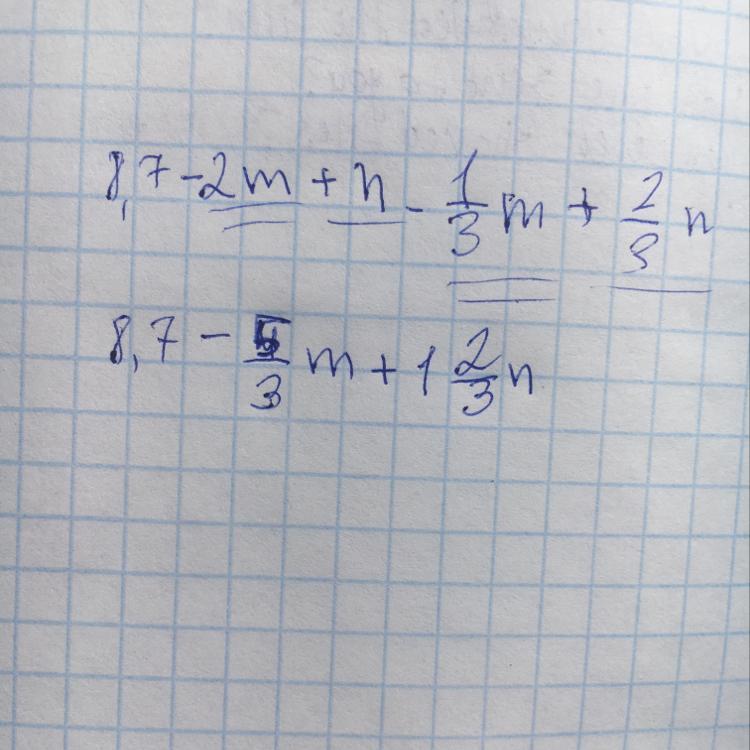 8,7 - 2m + n - 1/3 m + 2/3 n
8,7 - 5/3 m + 1 2/3 n